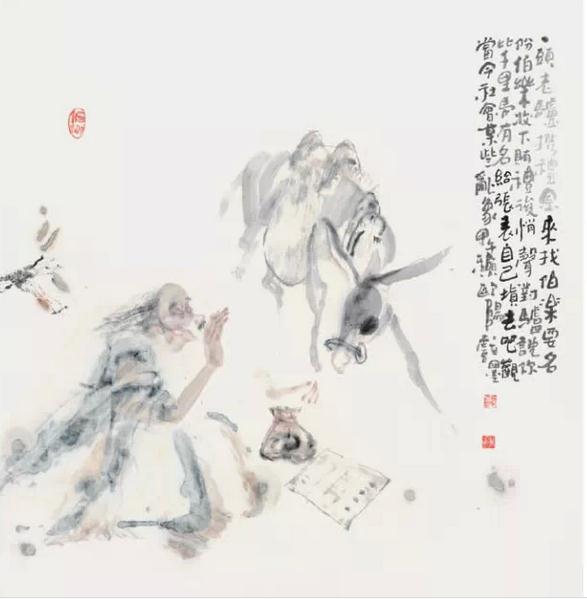 一頭老驢携禮金來找伯樂要名
份伯樂收下賄禮後悄聲對驢說你
比千里馬有名給張表自己填去吧觀
當今社會某些亂象甲午歐陽戲墨